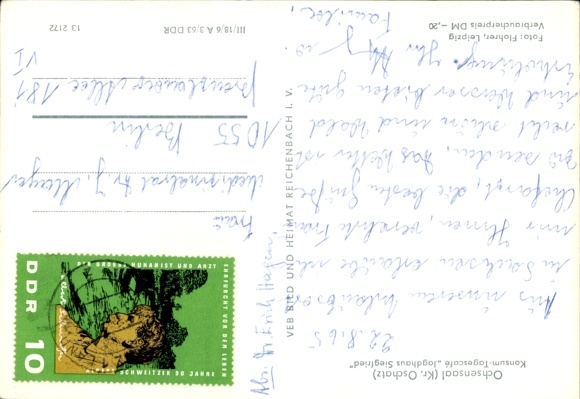 Ochsensaal (Kr. Oschatz)
Konsum-Tagescafé „Jagdhaus Siegfried"
22.8.65
Aus unserem Urlaubsort
in Sachsen erlaube ich
mir Ihnen, verehrte Frau
die besten Grüße
zu senden. Das Wetter ist
recht schön und Wald
und Wasser bieten gute
Erholung. Ihr
Familie.
Foto: Flohrer, Leipzig
Verbraucherpreis DM –,20
VEB BILD UND HEIMAT REICHENBACH I. V.
III/18/6 A 3/63 DDR
13 2172
Frau
Medizinalrat Dr. J. Meyer
1055 Berlin
Prenzlauer Allee 181
VI
Abs. Dr. Erich Hagen,
DDR 10
DER GROSSE HUMANIST UND ARZT
EHRFURCHT VOR DEM LEBEN
SCHWEITZER 90 JAHRE